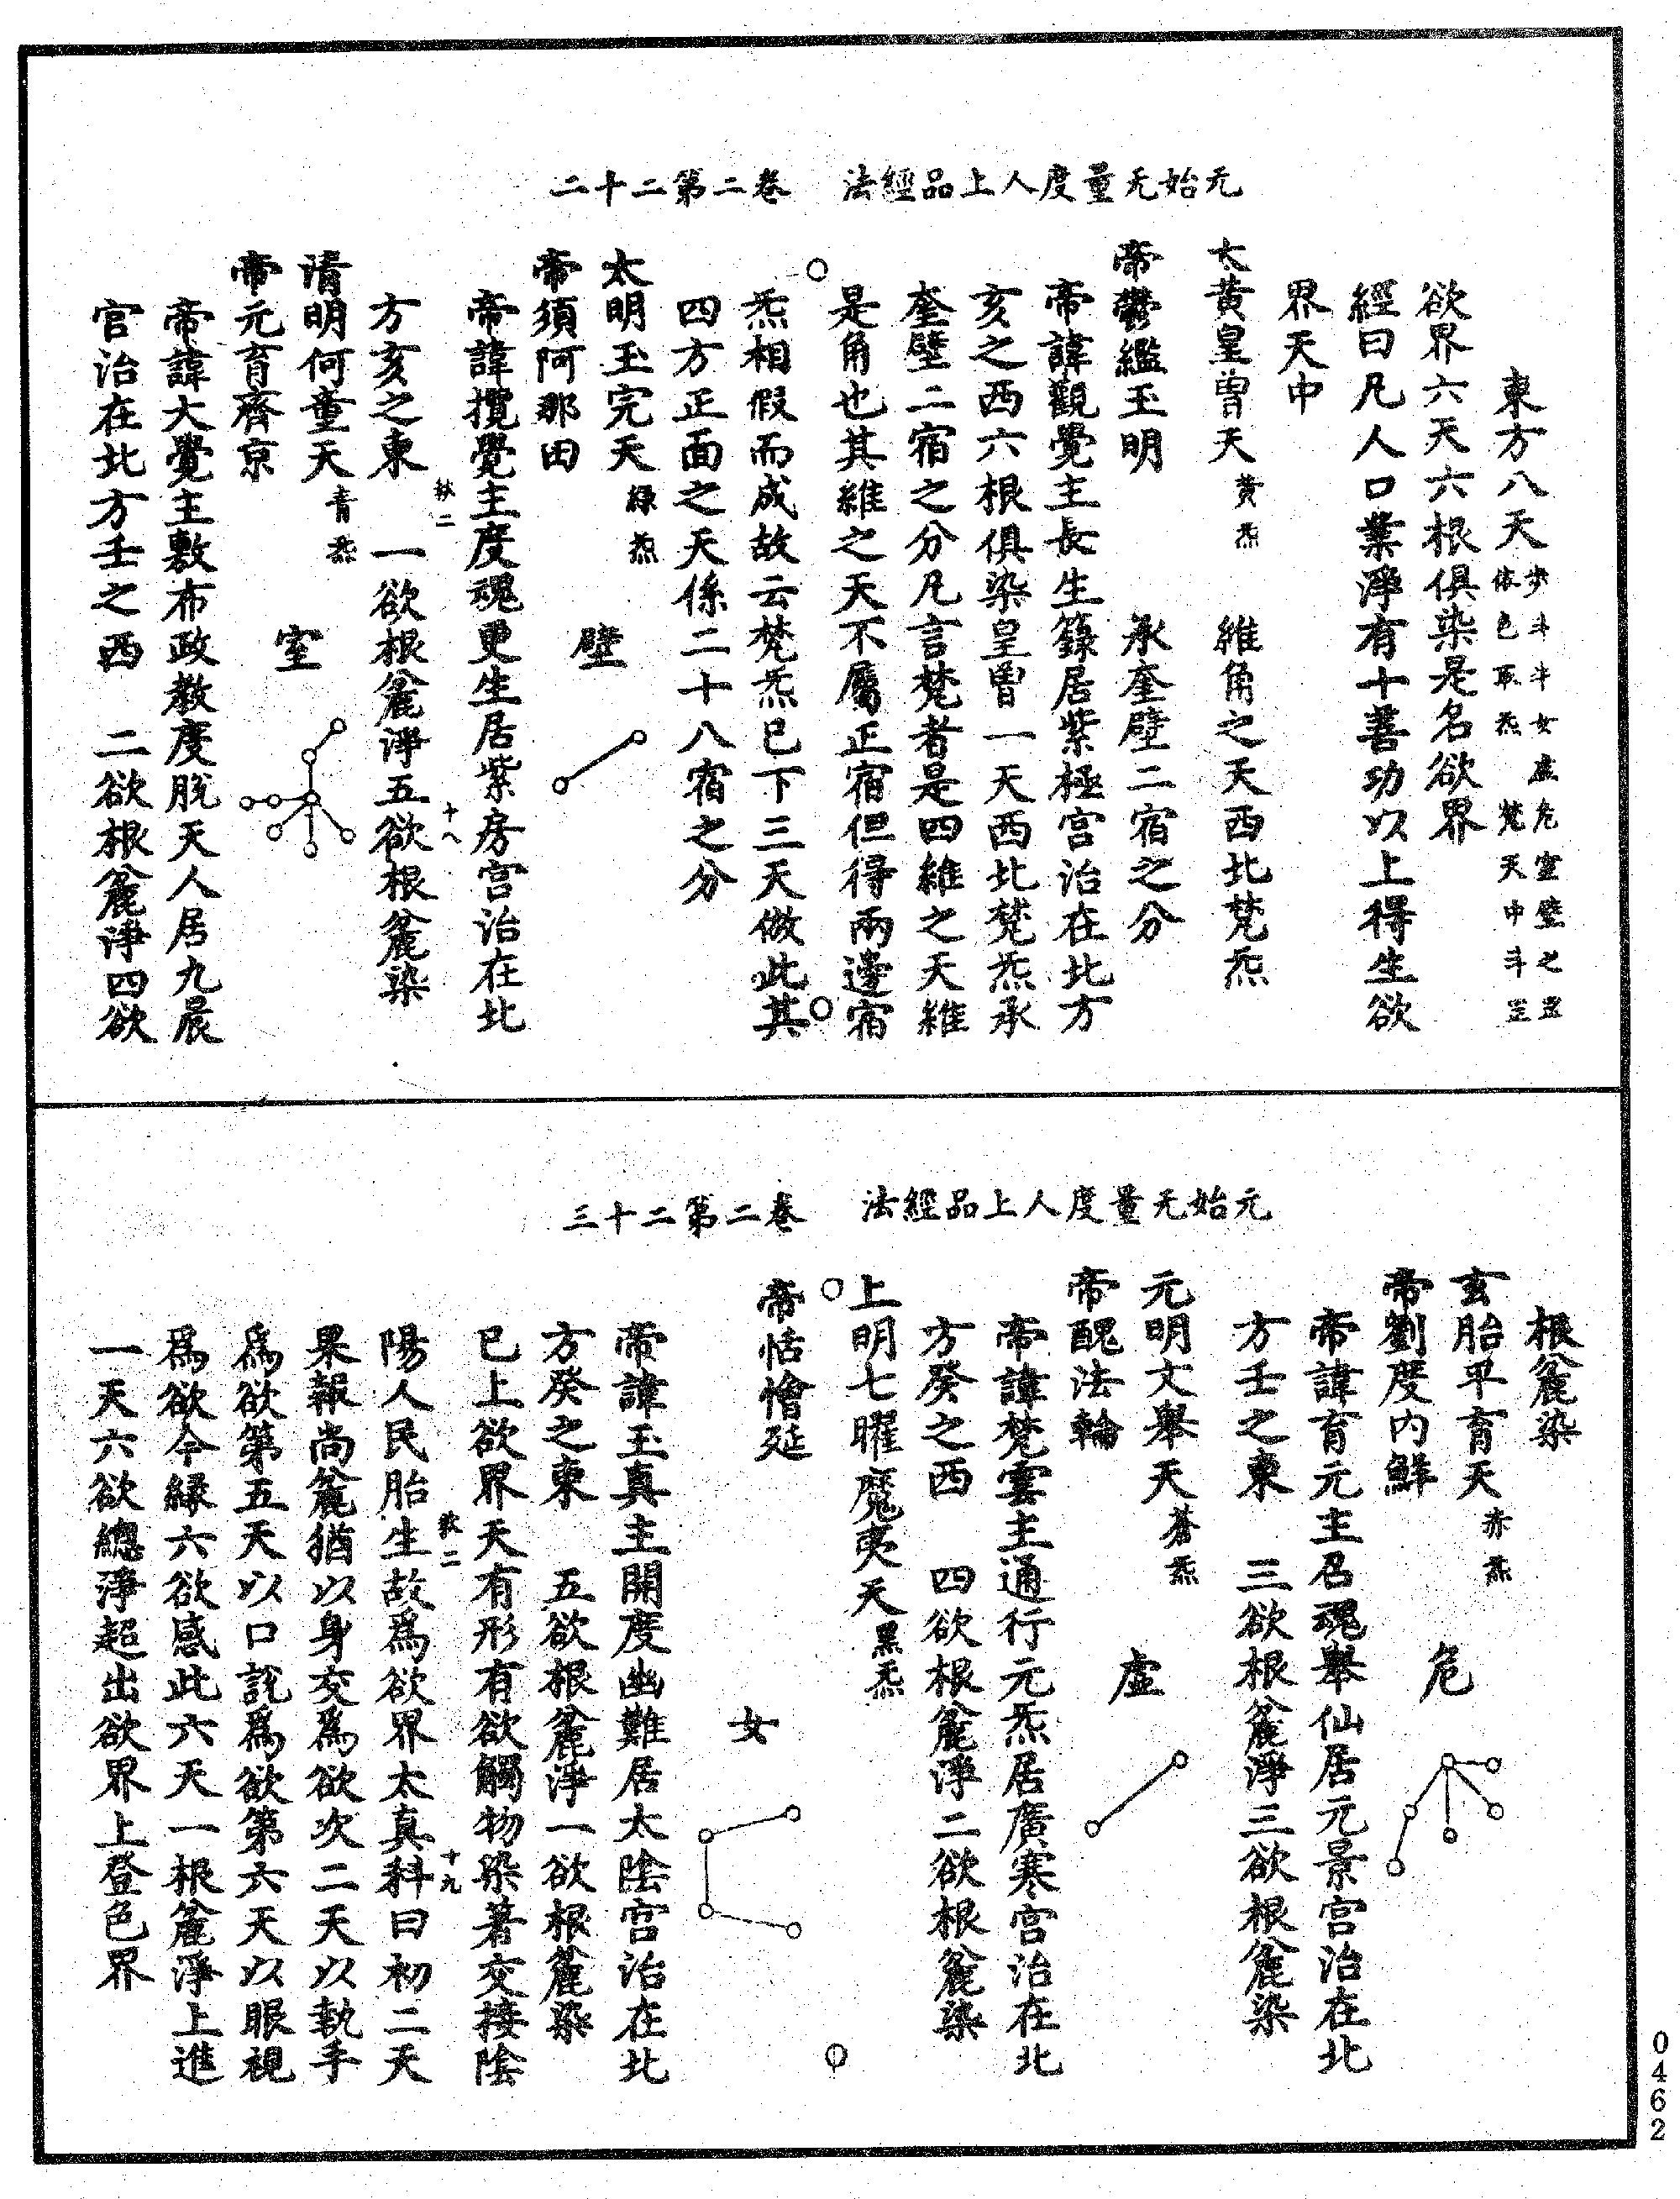 元始无量度人上品經法　卷二第二十二
東方八天步斗牛女虛危室壁之罡
依色取炁　梵天中斗罡
欲界六天六根俱染是名欲界
經曰凡人口業淨有十善功以上得生欲
界天中
太黄皇曽天黄炁　維角之天西北梵炁
帝鬱繿玉明　承奎壁二宿之分
帝諱觀覺主長生籙居紫極宫治在北方
亥之西六根俱染皇曽一天西北梵炁承
奎壁二宿之分凡言梵者是四維之天維
是角也其維之天不屬正宿但得兩邊宿
炁相假而成故云梵炁已下三天倣此其
四方正面之天係二十八宿之分
太明玉完天緑炁　壁
帝須阿那田
帝諱攬覺主度魂更生居紫房宫治在北
方亥之東　一欲根麄淨五欲根麄染
二　十八
清明何童天青炁　室
帝元育齊京
帝諱大覺主敷布政教度脫天人居九晨
宫治在北方壬之西　二欲根麄淨四欲
元始无量度人上品經法　卷二第二十三
根麄染
玄胎平育天赤炁　危
帝劉度内鮮
帝諱育元主召魂舉仙居元景宫治在北
方壬之東　三欲根麄淨三欲根麄染
元明文舉天蒼炁　虛
帝醜法輪
帝諱梵雲主通行元炁居廣寒宫治在北
方癸之西　四欲根麄淨二欲根麄染
上明七曜魔夷天黑炁
帝恬憎延　女
帝諱玉真主開度幽難居太陰宫治在北
方癸之東　五欲根麄淨一欲根麄染
已上欲界天有形有欲觸物染著交接陰
陽人民胎生故爲欲界太真科曰初二天
二　十九
果報尚麄猶以身交爲欲次二天以執手
爲欲第五天以口說爲欲第六天以眼視
爲欲今緣六欲感此六天一根麄淨上進
一天六欲總淨超出欲界上登色界
0462